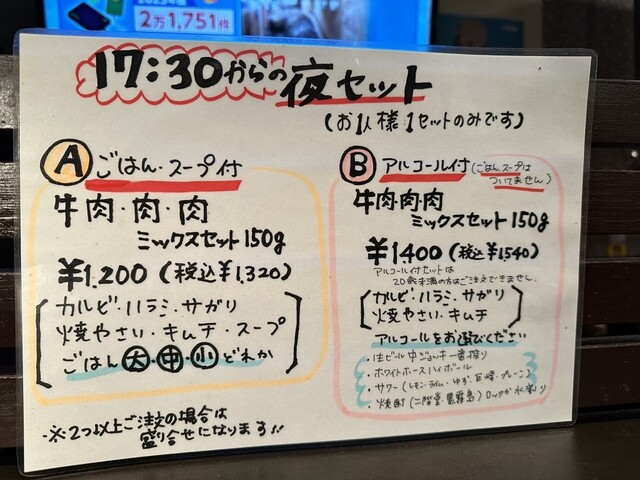 2万1,751件
17:30からの夜セット
(お1人様1セットのみです)
A ごはん・スープ付
牛肉・肉・肉
ミックスセット150g
¥1.200(税込¥1,320)
カルビ・ハラミ・サガリ
焼やさい・キムチ・スープ
ごはん大・中・小どれか
※2つ以上ご注文の場合は
盛り合せになります!!
B アルコール付(ごはん、スープは
ついてません)
牛肉肉肉
ミックスセット150g
¥1400(税込¥1,540)
アルコール付セットは
20歳未満の方はご注文できません。
カルビ・ハラミ・サガリ
焼やさい・キムチ
アルコールをお選びください
・生ビール中ジョッキ一番搾り
・ホワイトホースハイボール
・サワー(レモン・ライム・ゆず・巨峰・プレーン)
・焼酎(二階堂・黒霧島)ロックか水割り